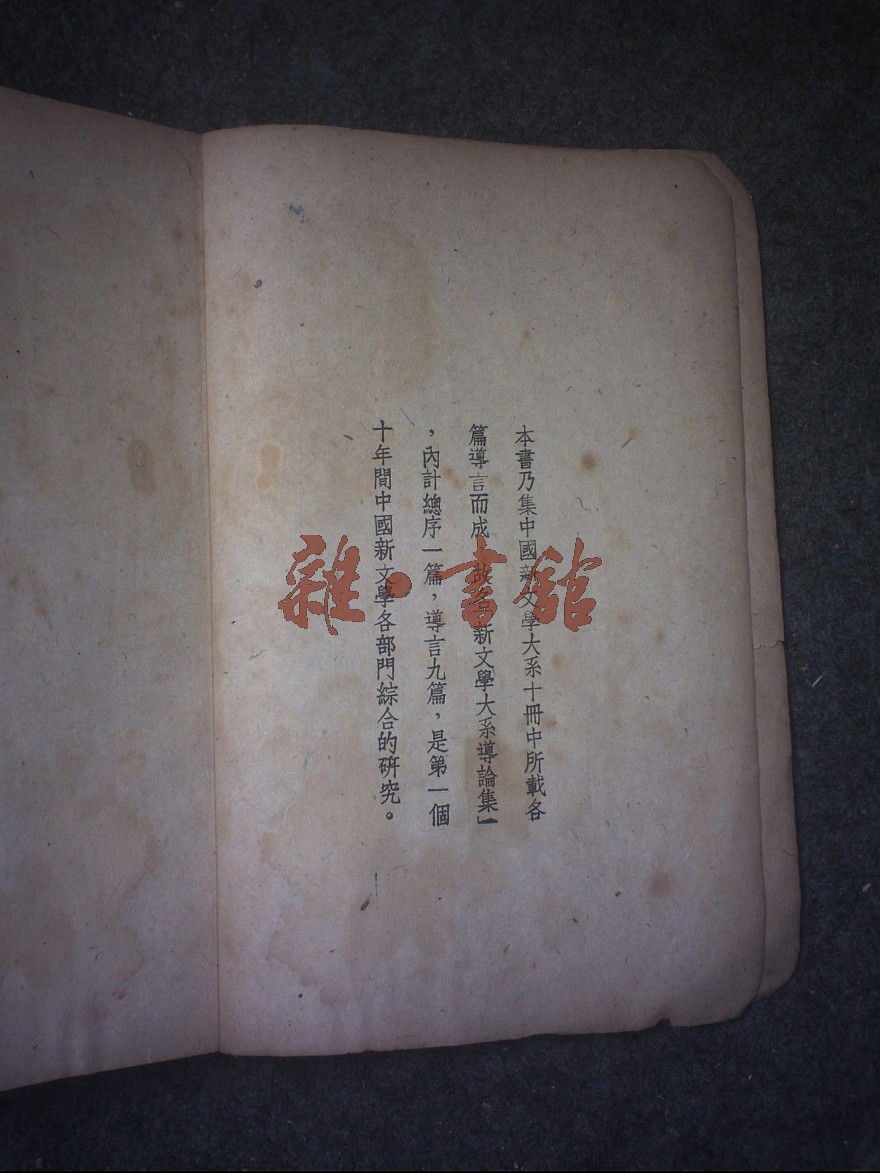 本書乃集中國新文學大系十冊中所載各
篇導言而成，故名「新文學大系導論集」
，內計總序一篇，導言九篇，是第一個
十年間中國新文學各部門綜合的研究。
雜·書館